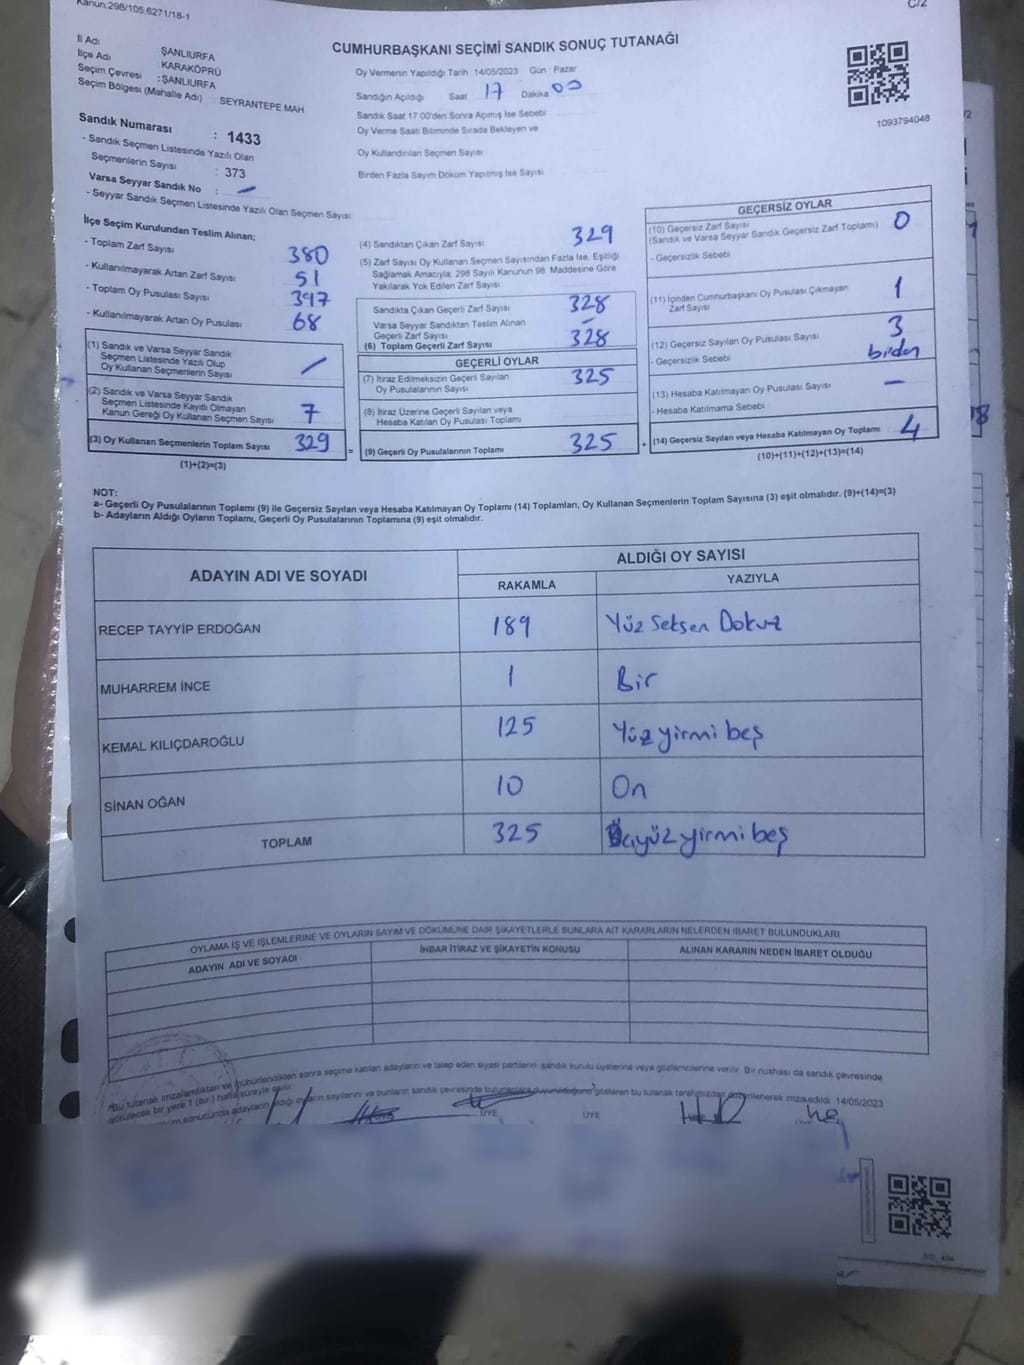 Kanun:298/105,6271/18-1
C/2
CUMHURBAŞKANI SEÇİMİ SANDIK SONUÇ TUTANAĞI
İl Adı ŞANLIURFA
İlçe Adı KARAKÖPRÜ
Seçim Çevresi : ŞANLIURFA
Seçim Bölgesi (Mahalle Adı) : SEYRANTEPE MAH
Sandık Numarası : 1433
- Sandık Seçmen Listesinde Yazılı Olan
Seçmenlerin Sayısı : 373
Varsa Seyyar Sandık No : -
- Seyyar Sandık Seçmen Listesinde Yazılı Olan Seçmen Sayısı
Oy Vermenin Yapıldığı Tarih :14/05/2023 Gün : Pazar
Sandığın Açıldığı Saat 17 Dakika 00
Sandık Saat 17:00'den Sonra Açımış İse Sebebi
Oy Verme Saati Bitiminde Sırada Bekleyen ve
Oy Kullandırılan Seçmen Sayısı
Birden Fazla Sayım Döküm Yapılmış İse Sayısı
1093794048
İlçe Seçim Kurulundan Teslim Alınan;
- Toplam Zarf Sayısı 380
- Kullanılmayarak Artan Zarf Sayısı 51
- Toplam Oy Pusulası Sayısı 397
- Kullanılmayarak Artan Oy Pusulası 68
(1) Sandık ve Varsa Seyyar Sandık
Seçmen Listesinde Yazılı Olup
Oy Kullanan Seçmenlerin Sayısı
(2) Sandık ve Varsa Seyyar Sandık
Seçmen Listesinde Kayıtlı Olmayan
Kanun Gereği Oy Kullanan Seçmen Sayısı 7
(3) Oy Kullanan Seçmenlerin Toplam Sayısı 329
(1)+(2)=(3)
(4) Sandıktan Çıkan Zarf Sayısı 329
(5) Zarf Sayısı Oy Kullanan Seçmen Sayısından Fazla İse, Eşitliği
Sağlamak Amacıyla, 298 Sayılı Kanunun 98. Maddesine Göre
Yakılarak Yok Edilen Zarf Sayısı
Sandıkta Çıkan Geçerli Zarf Sayısı 328
Varsa Seyyar Sandıktan Teslim Alınan
Geçerli Zarf Sayısı -
(6) Toplam Geçerli Zarf Sayısı 328
GEÇERLİ OYLAR
(7) İtiraz Edilmeksizin Geçerli Sayılan
Oy Pusulalarının Sayısı 325
(8) İtiraz Üzerine Geçerli Sayılan veya
Hesaba Katılan Oy Pusulası Toplamı
= (9) Geçerli Oy Pusulalarının Toplamı 325
GEÇERSİZ OYLAR
(10) Geçersiz Zarf Sayısı
(Sandık ve Varsa Seyyar Sandık Geçersiz Zarf Toplamı) 0
- Geçersizlik Sebebi
(11) İçinden Cumhurbaşkanı Oy Pusulası Çıkmayan
Zarf Sayısı 1
(12) Geçersiz Sayılan Oy Pusulası Sayısı 3
- Geçersizlik Sebebi birden
(13) Hesaba Katılmayan Oy Pusulası Sayısı -
- Hesaba Katılmama Sebebi
+ (14) Geçersiz Sayılan veya Hesaba Katılmayan Oy Toplamı 4
(10)+(11)+(12)+(13)=(14)
NOT:
a- Geçerli Oy Pusulalarının Toplamı (9) ile Geçersiz Sayılan veya Hesaba Katılmayan Oy Toplamı (14) Toplamları, Oy Kullanan Seçmenlerin Toplam Sayısına (3) eşit olmalıdır. (9)+(14)=(3)
b- Adayların Aldığı Oyların Toplamı, Geçerli Oy Pusulalarının Toplamına (9) eşit olmalıdır.
ADAYIN ADI VE SOYADI
ALDIĞI OY SAYISI
RAKAMLA YAZIYLA
RECEP TAYYİP ERDOĞAN 189 Yüz Seksen Dokuz
MUHARREM İNCE 1 Bir
KEMAL KILIÇDAROĞLU 125 Yüz yirmi beş
SİNAN OĞAN 10 On
TOPLAM 325 Üçyüz yirmi beş
OYLAMA İŞ VE İŞLEMLERİNE VE OYLARIN SAYIM VE DÖKÜMÜNE DAİR ŞİKAYETLERLE BUNLARA AİT KARARLARIN NELERDEN İBARET BULUNDUKLARI
ADAYIN ADI VE SOYADI İHBAR İTİRAZ VE ŞİKAYETİN KONUSU ALINAN KARARIN NEDEN İBARET OLDUĞU
*Bu tutanak imzalandıktan ve mühürlendikten sonra seçime katılan adayların ve talep eden siyasi partilerin sandık kurulu üyelerine veya gözlemcilerine verilir. Bir nushası da sandık çevresinde
görülecek bir yere 1 (Bir) hafta süreyle asılır.
sonucunda adayların aldığı oyların sayılarını ve bunların sandık çevresinde gösteren bu tutanak tarafımızdan düzenlenerek imza edildi. 14/05/2023
ÜYE ÜYE